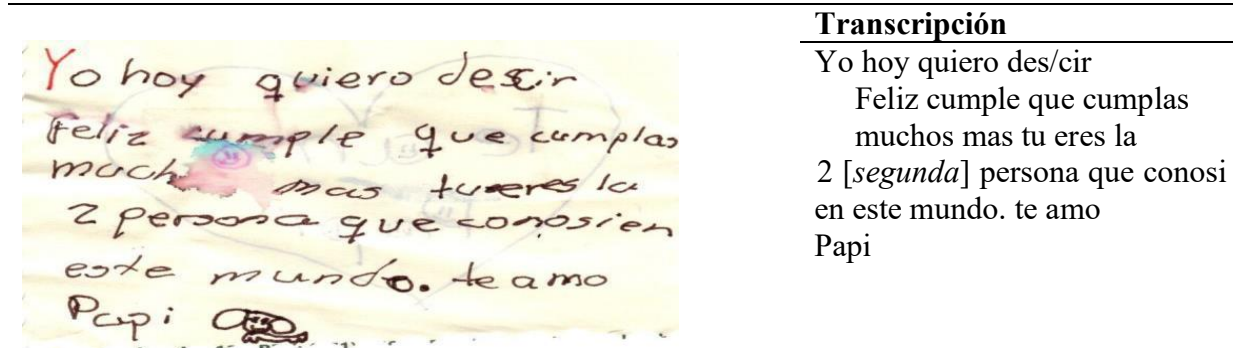 Yo hoy quiero descir
Feliz cumple que cumplas
much mas tu eres la
2 persona que conosi en
este mundo. te amo
Papi
Transcripción
Yo hoy quiero des/cir
Feliz cumple que cumplas
muchos mas tu eres la
2 [segunda] persona que conosi
en este mundo. te amo
Papi